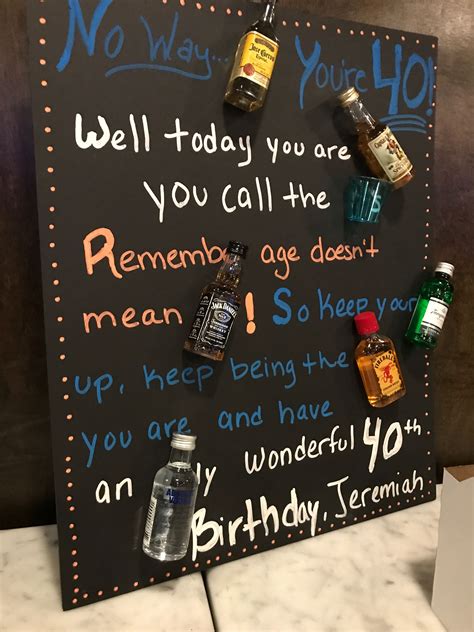 No Way... You're 40!
Jose Cuervo
Well today you are
you call the
Remember age doesn't
mean JACK DANIEL'S ! So keep your
FIREBALL
up, keep being the
you are and have
an ly wonderful 40th
Birthday, Jeremiah